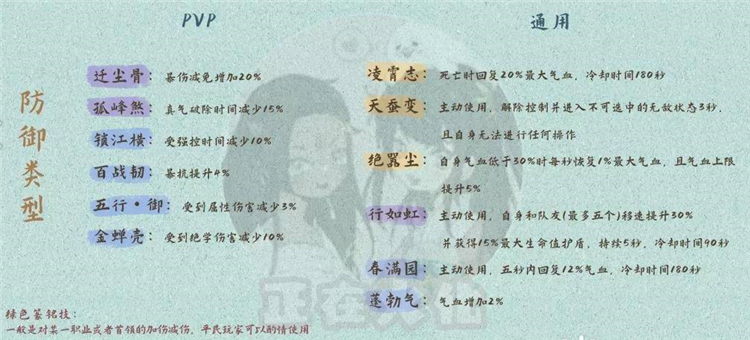 PVP
通用
防御类型
迁尘骨：暴伤减免增加20%
孤峰煞：真气破除时间减少15%
锁江横：受强控时间减少10%
百战韧：暴抗提升4%
五行·御：受到属性伤害减少3%
金蝉壳：受到绝学伤害减少10%
凌霄志：死亡时回复20%最大气血，冷却时间180秒
天蚕变：主动使用，解除控制并进入不可选中的无敌状态3秒，
且自身无法进行任何操作
绝嚣尘：自身气血低于30%时每秒恢复1%最大气血，且气血上限
提升5%
行如虹：主动使用，自身和队友(最多五个)移速提升30%
并获得15%最大生命值护盾，持续5秒，冷却时间90秒
春满园：主动使用，五秒内回复12%气血，冷却时间180秒
蓬勃气：气血增加2%
绿色篆铭技：
一般是对某一职业或者首领的加伤减伤，平民玩家可以酌情使用
正在